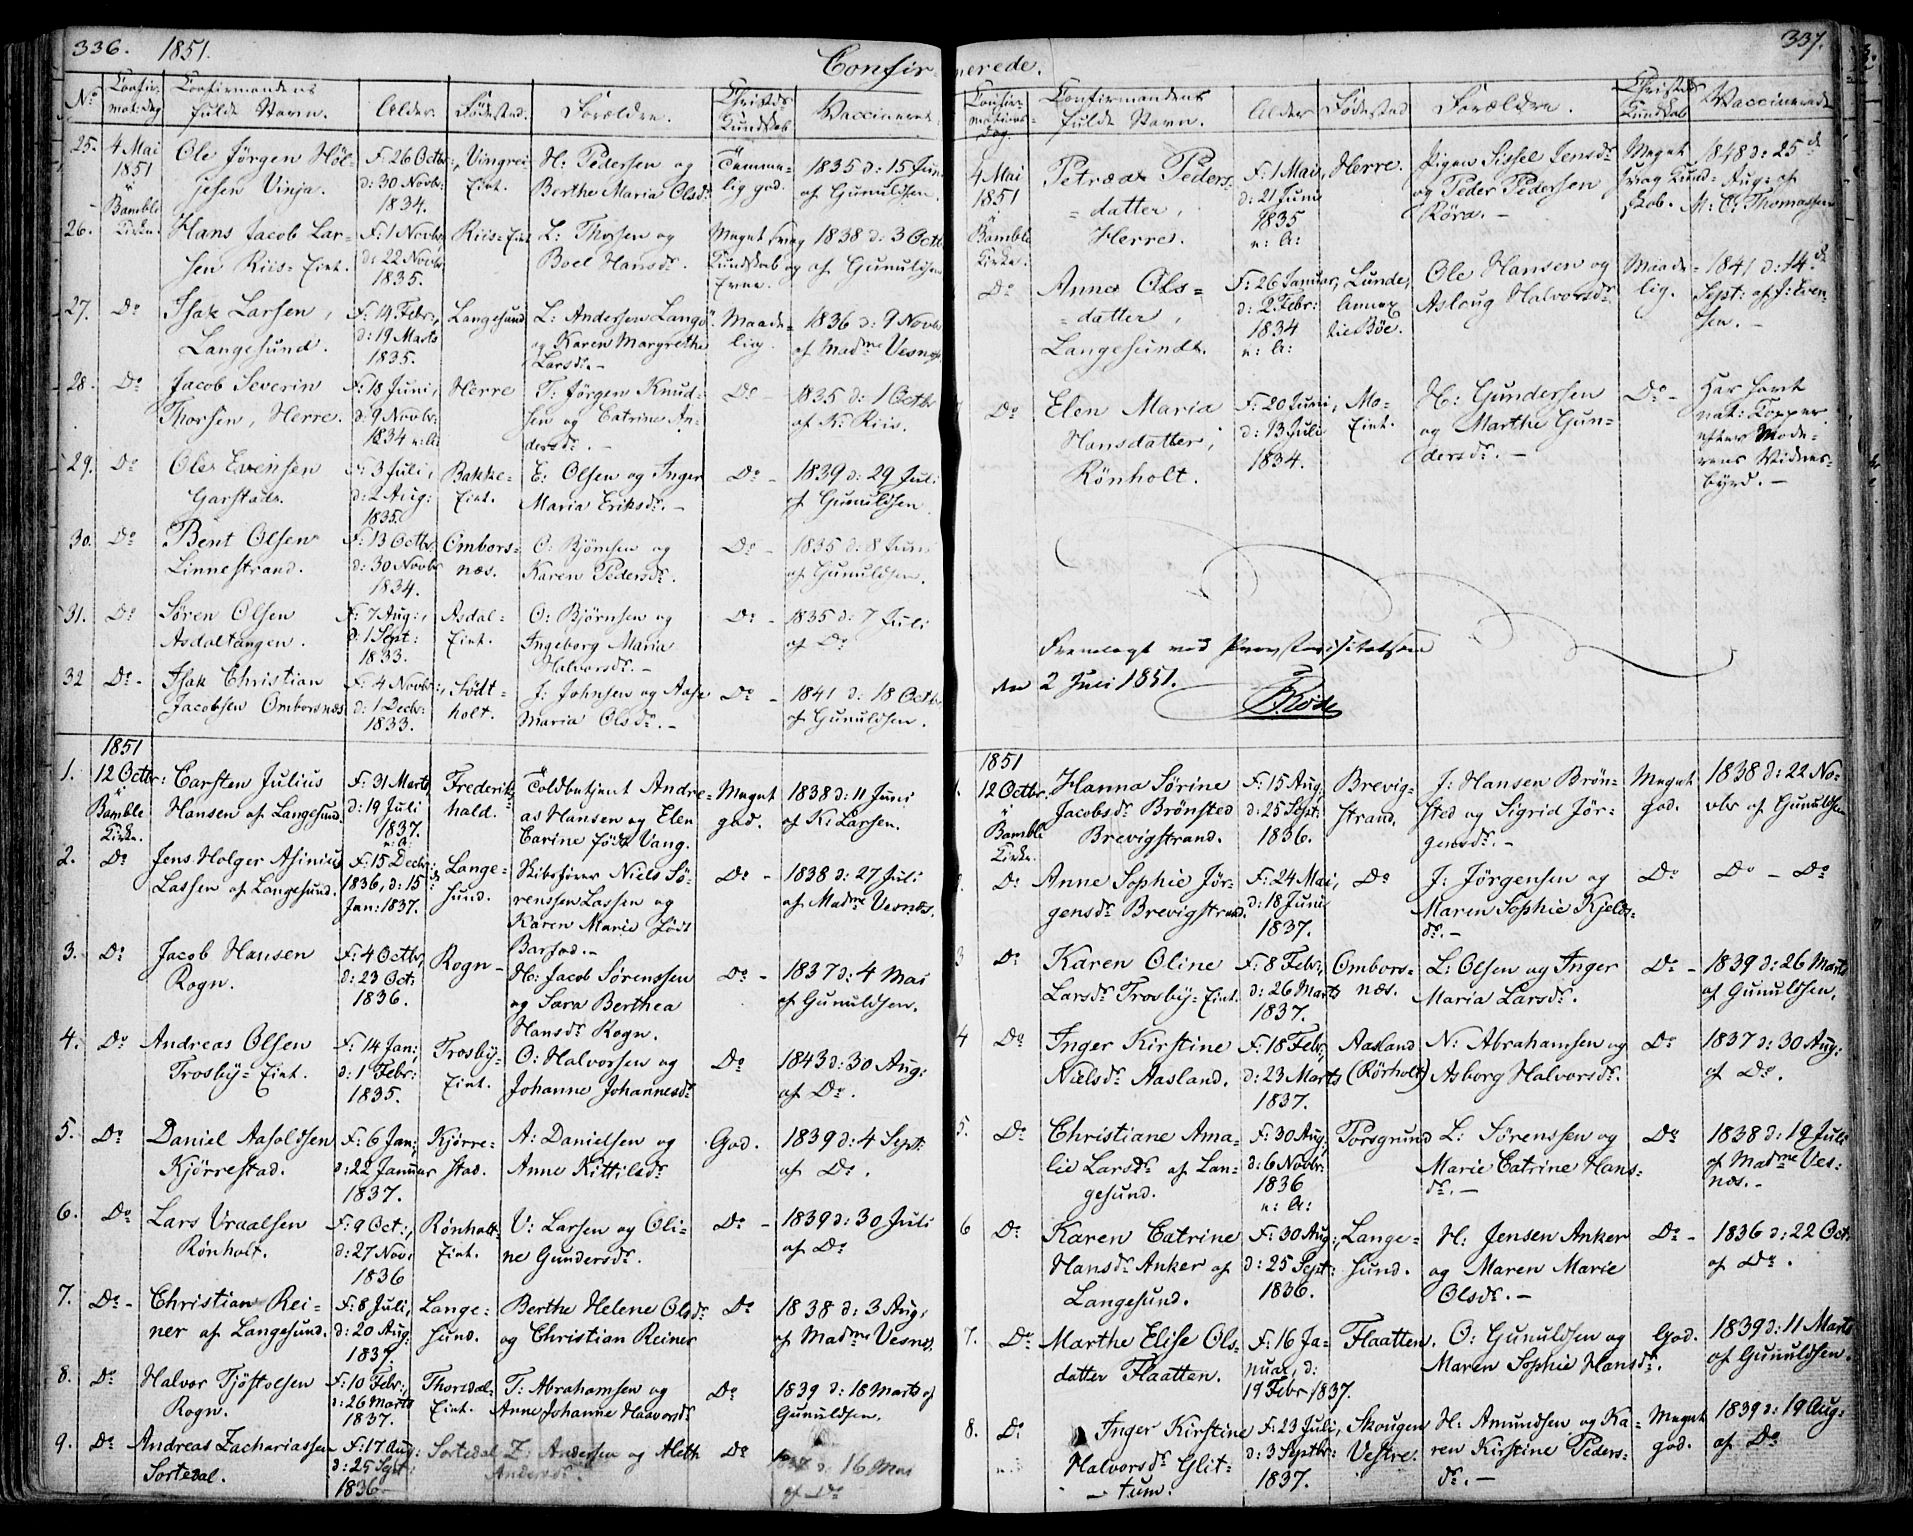 336. 1851.
Confir-
No
Confir-
mat: Dag
Confirmandens
fulde Navn.
Alder.
Fødested.
Forældre.
Christds
Kundskab
Vaccineret.
25. 4 Mai
1851
i
Bamble
Kirke.
Ole Jörgen Höl-
jesen Vinje.
F: 26 Octbr:,
d: 30 Novb:
1834.
Vingrei
Eint.
H: Pedersen og
Berthe Maria Olsdr.
Temme-
lig god.
1835 d: 15 Juni
af Gunuldsen.
26.
Hans Jacob Lar-
sen Riis-Eint.
F: 1 Novbr
d: 22 Novbr
1835.
Riis-Eint
L: Thorsen og
Boel Hansdr.
Meget svag
Kundskab og
Evne.
1838 d: 3 Octb
af Gunuldsen
27. Do
Isak Larsen,
Langesund.
F: 14 Febr:,
d: 19 Marts
1835.
Langesund
L: Andersen Langö
og Karen Margrethe
Larsdr. -
Maade-
lig.
1836 d: 9 Novbr
af Madme Vesnes.
28. Do
Jacob Severin
Thorsen, Herre.
F: 18 Juni,
d: 9 Novbr:
1834 n: A:
Herre
T: Jörgen Knud-
sen og Catrine An-
dersdr. -
Do -
1835 d: 1 Octbr
af K: Riis.
29. Do
Ole Evensen
Garstad.
F: 3 Juli,
d: 2 Aug:
1835.
Bakke-
Eint.
E: Olsen og Inger
Maria Eriksdr. -
Do -
1839 d: 29 Juli
af Gunuldsen.
30. Do
Bent Olsen
Linnestrand.
F: 13 Octbr.
d: 30 Novbr
1834.
Ombors-
næs.
O: Bjørnsen og
Karen Pedersdr.
Do -
1835 d: 8 Juni
af Gunuldsen.
31. Do
Søren Olsen
Asdaltangen.
F: 7 Aug:,
d: 1 Sept:
1833.
Asdal-
Eint.
O: Bjørnsen og
Ingeborg Maria
Halvorsdr. -
Do -
1835 d: 7 Juli
af Do
32 Do -
Isak Christian
Jacobsen Omborsnæs
F: 4 Novbr:,
d: 1 Decbr:
1833.
Södt-
holt.
J: Johnsen og Aase
Maria Olsdr. -
Do -
1841 d: 18 Octbr.
af Gunuldsen.
1. 1851
12 Octbr:
i
Bamble
Kirke.
Carsten Julius
Hansen af Langesund.
F: 31 Marts
d: 19 Juli
1837.
n: A:
Frederiks-
hald.
Toldbetjent Andre-
as Hansen og Elen
Carine född Vang.
Meget
god.
1838 d: 11 Juni
af K: Larsen.
2. Do
Jens Holger Asinius
Lassen af Langesund.
F: 15 Decbr:
1836, d: 15
Jan: 1837.
Lange-
sund.
Skibsfører Niels Sö-
renssen Lassen og
Karen Marie född
Barsod. -
Do -
1838 d: 27 Juli
af Madme Vesnes.
3. Do
Jacob Hansen
Rogn.
F: 4 Octbr,
d: 23 Oct:
1836.
Rogn -
H: Jacob Sørenssen
og Sara Berthea
Hansdr Rogn.
Do -
1837 d: 4 Mai
af Gunuldsen.
4. Do
Andreas Olsen
Trosby-Eint.
F: 14 Jan:,
d: 1 Febr:
1835.
Trosby-
Eint.
O: Halvorsen og
Johanne Johannesdr
Do
1843 d: 30 Aug:
af Do.
5. Do
Daniel Aasoldsen
Kjörrestad.
F: 6 Jan:,
d: 22 Januar
1837.
Kjörre-
stad.
A: Danielsen og
Anne Kittilsdr
God.
1839 d: 4 Sept:
af Do.
6. Do
Lars Vraalsen
Rönholt.
F: 9 Oct:,
d: 27 Nov:
1836
Rönholt-
Eint.
V: Larsen og Oli-
ne Gundersdr.
Do -
1839 d: 30 Juli
af Do
7. Do -
Christian Rei-
ner af Langesund.
F: 8 Juli,
d: 20 Aug:
1837.
Lange-
sund.
Berthe Helene Olsdr
og Christian Reiner
Do
1838 d: 3 Aug:
af Madme Vesnes.
8. Do
Halvor Tjöstolsen
Rogn.
F: 10 Febr:,
d: 26 Marts
1837.
Thorsdal-
Eint.
T: Abrahamsen og
Anne Johanne Haavorsdr
Do
1839 d: 18 Marts af
Gunuldsen.
9. Do
Andreas Zachariassen
Sortedal.
F: 17 Aug:
d: 25 Sept:
1836
Sortedal
Z: Andersen og Aleth
Andersdr.
Do
1837 d: 16 Mai
af Do
337.
merede.
Confir-
mations-
Dag.
Confirmandens
fulde Navn.
Alder
Fødested
Forældre.
Christds
Kundskab
Vaccinerede
4 Mai
1851
i
Bamble
Kirke.
Petrea Peders-
datter,
Herre.
F: 1 Mai,
d: 21 Juni
1835
n: A:
Herre.
Pigen Sissel Jensdr
og Peder Pedersen
Röra. -
Meget
svag Kund-
skab.
1848 d: 25de
Aug: af
M: C: Thomassen
Do
Anne Ols-
datter,
Langesund.
F: 26 Januar,
d: 2 Febr:
1834
n: A:
Lunde,
Annex
til Bøe.
Ole Hansen og
Aslaug Halvorsdr.
Maade-
lig.
1841 d: 14de
Sept: af J: Even-
sen. -
Do
Elen Maria
Hansdatter,
Rönholt.
F: 20 Juni,
d: 13 Juli
1834.
Mo-
Eint.
H: Gundersen
og Marthe Gun-
dersdr. -
Do -
Har havt
nat: Kopper
efter Mode-
rens Vidnes-
byrd. -
Fremlagt ved Provstevisitatsen
den 2 Juli 1851.
1. 1851
12 Octbr:
i
Bamble
Kirke.
Hanna Sörine
Jacobsdr Brönsted
Brevigstrand.
F: 15 Aug,
d: 25 Sept:
1836.
Brevig-
strand.
J: Hansen Brön-
sted og Sigrid Jör-
gensdr. -
Meget
god.
1838 d: 22 No-
vbr af Gunuldsen
Do
Anne Sophie Jör-
gensdr Brevigstrand.
F: 24 Mai,
d: 18 Juni
1837.
Do
J: Jörgensen og
Maren Sophie Kjelds-
dr. -
Do
Do - Do
3 Do
Karen Oline
Larsdr Trosby-Eint.
F: 8 Febr:,
d: 26 Marts
1837.
Ombors-
næs.
L: Olsen og Inger
Maria Larsdr.
Do -
1839 d: 26 Marts
af Gunuldsen.
4 Do
Inger Kirstine
Nielsdr Aasland.
F: 18 Febr:,
d: 23 Marts
1837.
Aasland
(Rörholt)
N: Abrahamsen og
Asborg Halvorsdr.
Do
1837 d: 30 Aug:
af Do.
5. Do
Christiane Ama-
lie Larsdr af Lan-
gesund.
F: 30 Aug,
d: 6 Novbr:
1836
n: A:
Porsgrund
L: Sörenssen og
Marie Catrine Hans-
dr. -
Do
1838 d: 19 Juli
af Madme Ves-
næs. -
6 Do
Karen Catrine
Hansdr Anker af
Langesund.
F: 30 Aug:,
d: 25 Sept:
1836.
Lange-
sund.
H: Jensen Anker
og Maren Marie
Olsdr. -
Do -
1836 d: 22 Oct:
af Do.
7. Do
Marthe Elise Ols-
datter Flaatten.
F: 16 Ja-
nuar, d:
19 Febr 1837.
Flaatten.
O: Gunuldsen og
Maren Sophie Hansdr.
God.
1839 d: 11 Marts
af Gunuldsen.
8. Do
Inger Kirstine
Halvorsdr Glit-
tum.
F: 23 Juli,
d: 3 Septbr:
1837.
Skougen
Vestre.
H: Amundsen og Ka-
ren Kirstine Peders-
dr. -
Meget
god.
1839 d: 19 Aug:
af Do